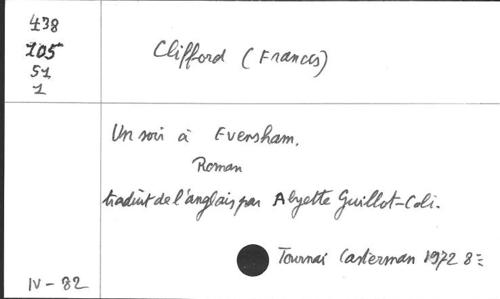 438
105
51
1
Clifford (Francis)
Un soir à Evensham.
Roman
traduit de l'anglais par Alyette Guillot-Coli.
Tournai Casterman 1972 8=
IV - 82